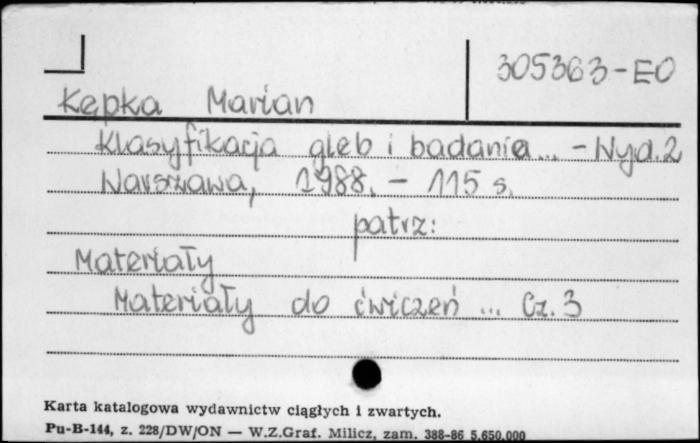 305363-EO
Kępka Marian
Klasyfikacja gleb i badania... - Wyd. 2
Warszawa, 1988. - 115 s.
patrz:
Materiały
Materiały do ćwiczeń ... Cz. 3
Karta katalogowa wydawnictw ciągłych i zwartych.
Pu-B-144, z. 228/DW/ON — W.Z.Graf. Milicz, zam. 388-86 5.650.000